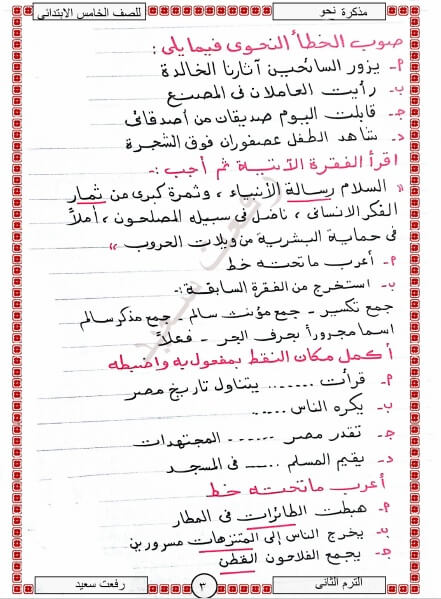 مذكرة نحو
للصف الخامس الابتدائى
صوب الخطأ النحوى فيما يلى :
م- يزور السائحين آثارنا الخالدة
ب- رأيت العاملان فى المصنع
جـ- قابلت اليوم صديقان من أصدقائى
د- شاهد الطفل عصفوران فوق الشجرة
اقرأ الفقرة الآتية ثم أجب :-
« السلام رسالة الأنبياء ، وثمرة كبرى من ثمار
الفكر الانسانى ، ناضل فى سبيله المصلحون ، أملاً
فى حماية البشرية من ويلات الحروب »
م- أعرب ما تحته خط
ب- استخرج من الفقرة السابقة :-
جمع تكسير - جمع مؤنث سالم - جمع مذكر سالم
اسما مجروراً بحرف الجر - فعلاً
أكمل مكان النقط بمفعول به واضبطه
م- قرأت ....... يتناول تاريخ مصر
ب- يكره الناس .....
جـ- تقدر مصر ...... المجتهدات
د- يقيم المسلم ..... فى المسجد
أعرب ما تحته خط
م- هبطت الطائرات فى المطار
ب- يخرج الناس إلى المتنزهات مسرورين
جـ- يجمع الفلاحون القطن
الترم الثانى
٣
رفعت سعيد
رفعت سعيد